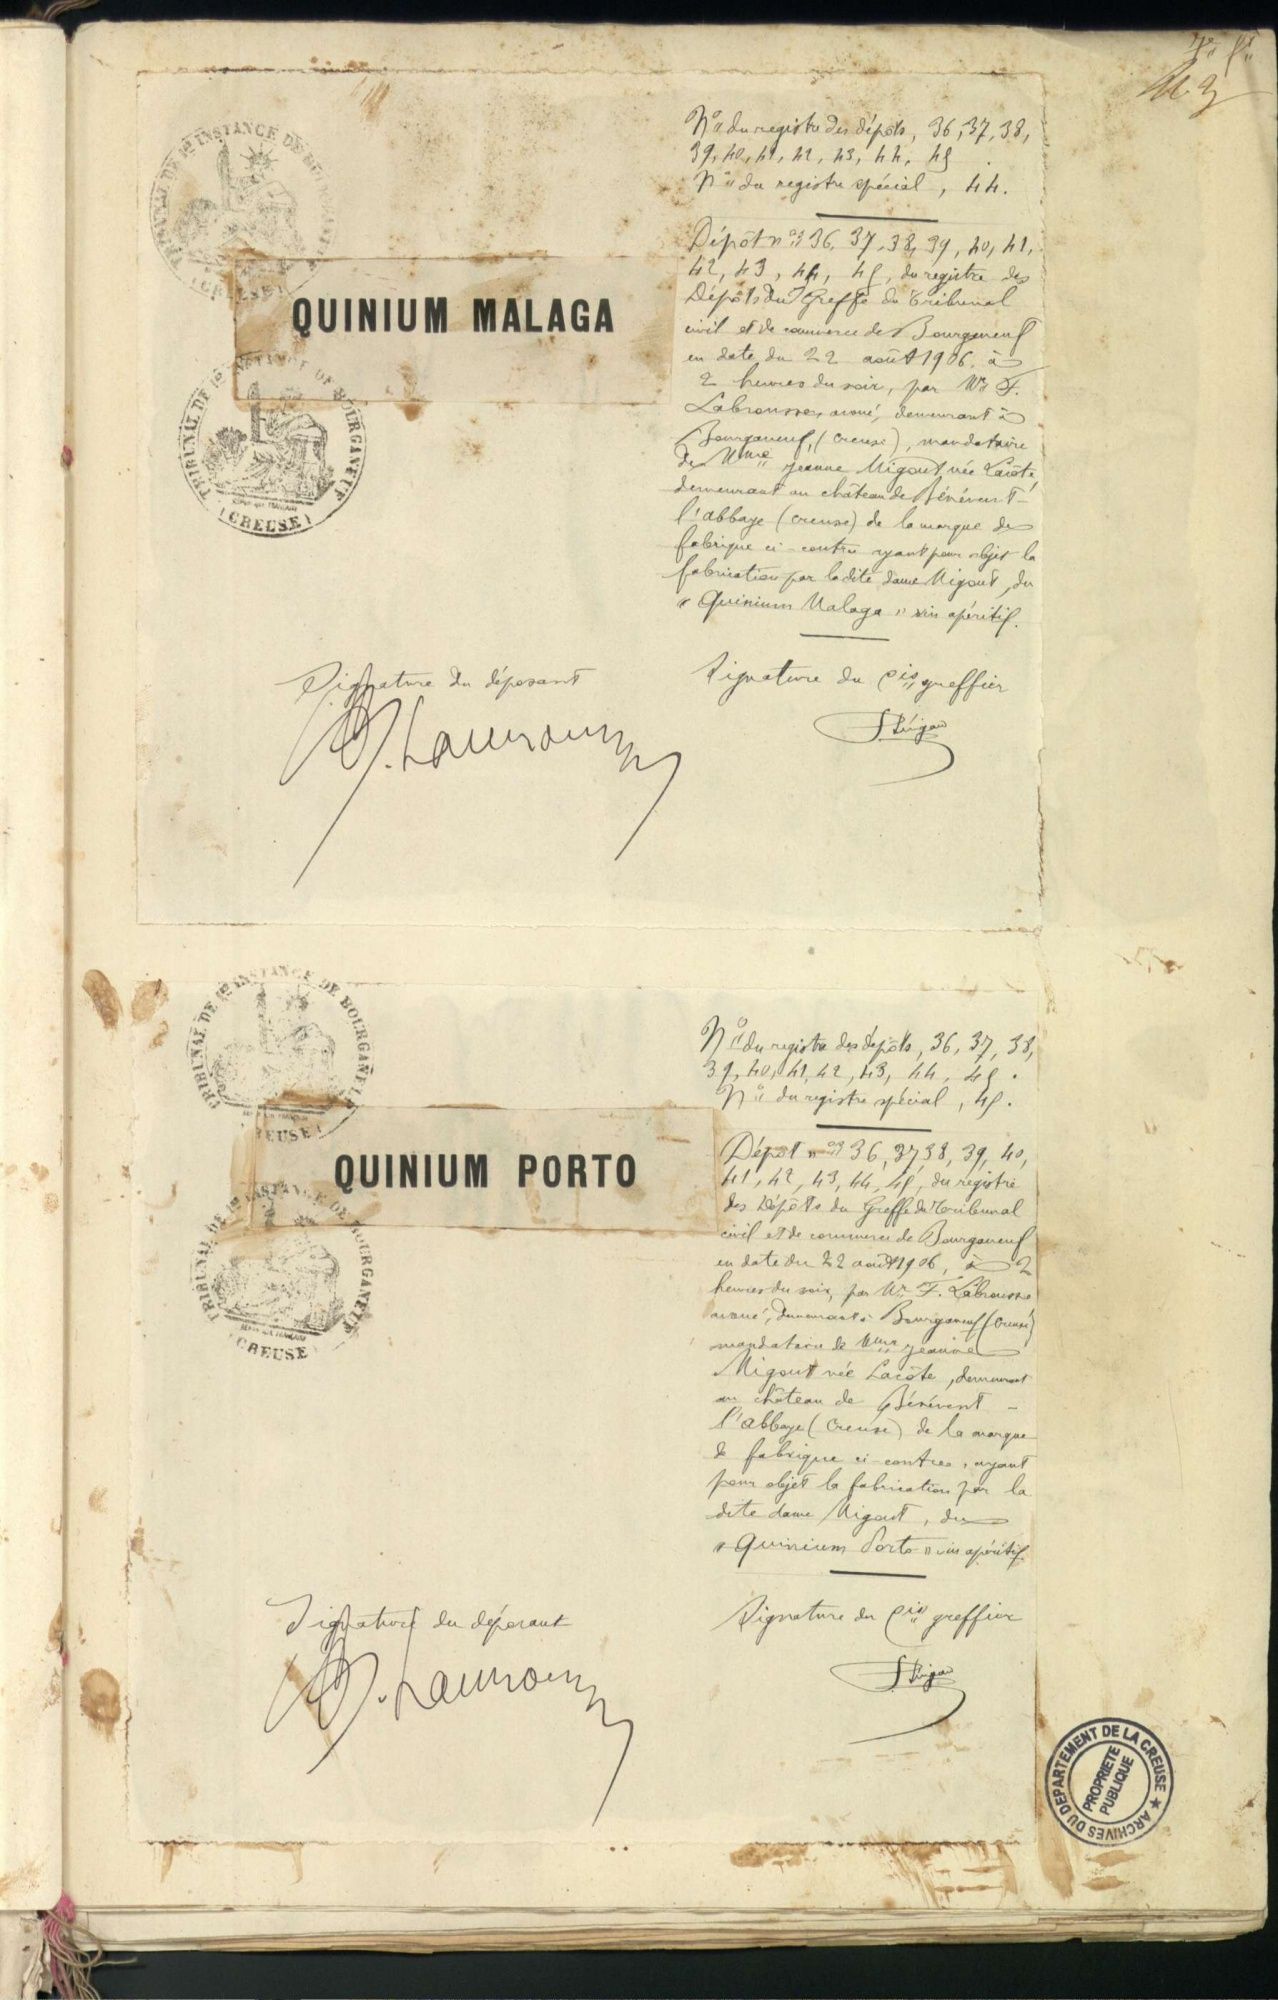 TRIBUNAL DE 1re INSTANCE DE
(CREUSE)
QUINIUM MALAGA
TRIBUNAL DE 1re INSTANCE DE BOURGANEUF
(CREUSE)
No du registre des dépôts, 36, 37, 38,
39, 40, 41, 42, 43, 44, 45
No du registre spécial, 44.
Dépôt nos 36, 37, 38, 39, 40, 41,
42, 43, 44, 45, du registre des
Dépôts du Greffe du Tribunal
civil et de commerce de Bourganeuf
en date du 22 août 1906, à
2 heures du soir, par Me F.
Labrousse, avoué, demeurant à
Bourganeuf, (Creuse), mandataire
de Mme Jeanne Migout née Lacôte
demeurant au château de Bénévent-
l'abbaye (Creuse) de la marque de
fabrique ci-contre ayant pour objet la
fabrication par la dite dame Migout, du
« Quinium Malaga » vin apéritif.
Signature du déposant
Signature du cis greffier
F. Labrousse
TRIBUNAL DE 1re INSTANCE DE BOURGANEUF
(CREUSE)
QUINIUM PORTO
TRIBUNAL DE 1re INSTANCE DE BOURGANEUF
(CREUSE)
No du registre des dépôts, 36, 37, 38,
39, 40, 41, 42, 43, 44, 45.
No du registre spécial, 45.
Dépôt nos 36, 37 38, 39, 40,
41, 42, 43, 44, 45, du registre
des Dépôts du Greffe du Tribunal
civil et de commerce de Bourganeuf
en date du 22 août 1906, à 2
heures du soir, par Me F. Labrousse
avoué, demeurant à Bourganeuf (Creuse)
mandataire de Mme Jeanne
Migout née Lacôte, demeurant
au château de Bénévent-
l'abbaye (Creuse) de la marque
de fabrique ci-contre, ayant
pour objet la fabrication par la
dite dame Migout, du
« Quinium Porto » vin apéritif
Signature du déposant
Signature du cis greffier
F. Labrousse
ARCHIVES DU DEPARTEMENT DE LA CREUSE ★
PROPRIETE
PUBLIQUE